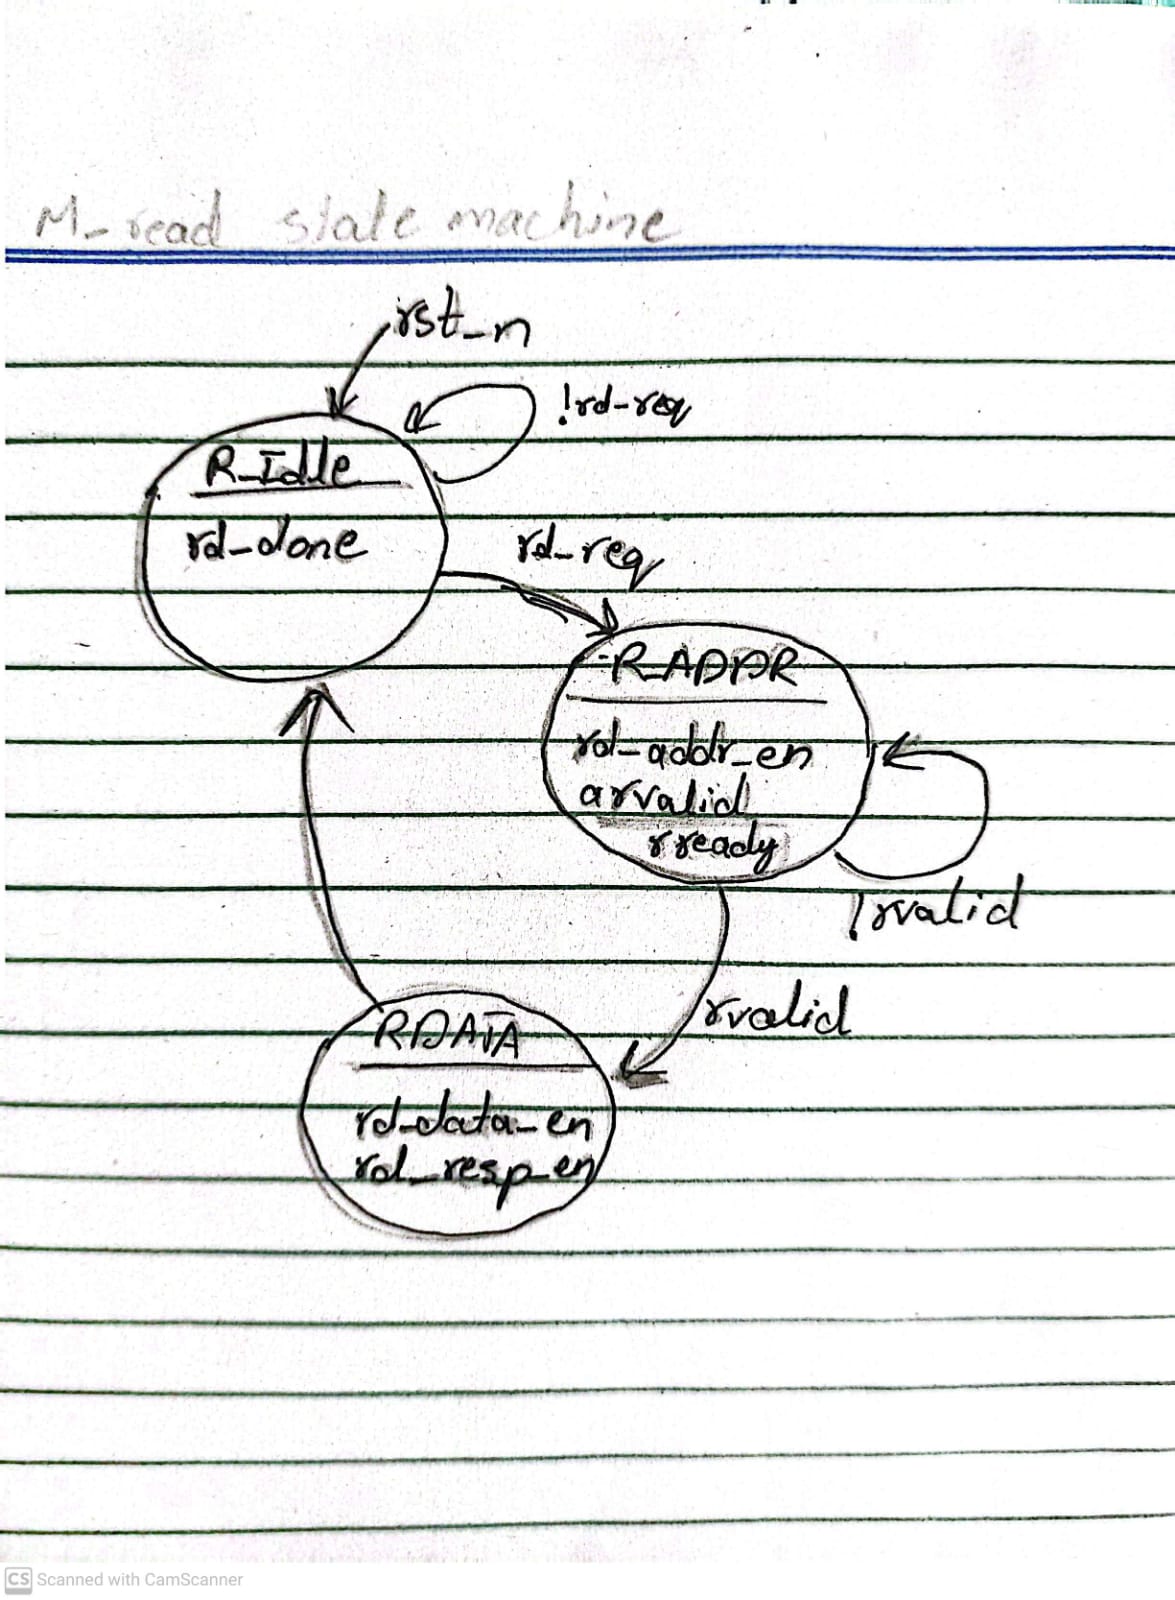 M_read state machine
rst_n
!rd-req
R_Idle
rd-done
rd_req
R_ADDR
rd_addr_en
arvalid
rready
!rvalid
rvalid
RDATA
rd-data_en
rd_resp_en
CS Scanned with CamScanner